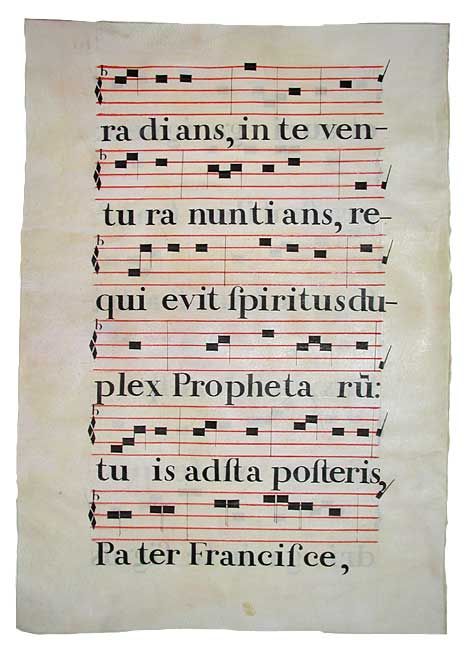 ra di ans, in te ven-
tu ra nunti ans, re-
qui evit ſpiritus du-
plex Propheta rũ:
tu is adſta poſteris,
Pa ter Franciſce,